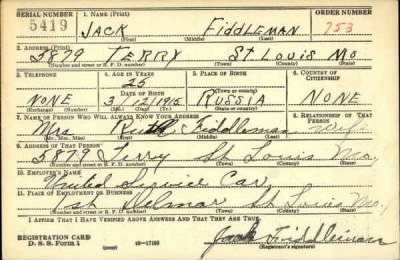 SERIAL NUMBER 1. NAME (Print) ORDER NUMBER
5419 JACK FIDDLEMAN 753
(First) (Middle) (Last)
2. ADDRESS (Print)
3829 TERRY ST LOUIS MO
(Number and street or R. F. D. number) (Town) (County) (State)
3. TELEPHONE 4. AGE IN YEARS 5. PLACE OF BIRTH 6. COUNTRY OF CITIZENSHIP
25
DATE OF BIRTH (Town or county)
NONE 1915 RUSSIA NONE
(Exchange) (Number) (Mo.) (Day) (Yr.) (State or country)
7. NAME OF PERSON WHO WILL ALWAYS KNOW YOUR ADDRESS 8. RELATIONSHIP OF THAT PERSON
Mrs Ruth Fiddleman Wife
(Mr., Mrs., Miss) (First) (Middle) (Last)
9. ADDRESS OF THAT PERSON
3829 Terry St Louis Mo.
(Number and street or R. F. D. number) (Town) (County) (State)
10. EMPLOYER'S NAME
United Service Car
11. PLACE OF EMPLOYMENT OR BUSINESS
Delmar St Louis Mo.
(Number and street or R. F. D. number) (Town) (County) (State)
I AFFIRM THAT I HAVE VERIFIED ABOVE ANSWERS AND THAT THEY ARE TRUE.
REGISTRATION CARD
D. S. S. Form 1 (over) 16—17105 Jack Fiddleman
(Registrant's signature)